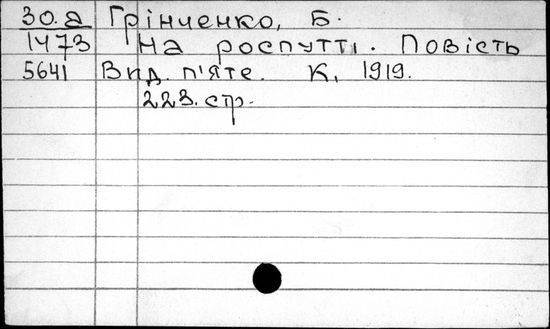 30.а Грінченко, Б.
1473 На роспутті. Повість
5641 Вид. п'яте. К. 1919.
223. стр.